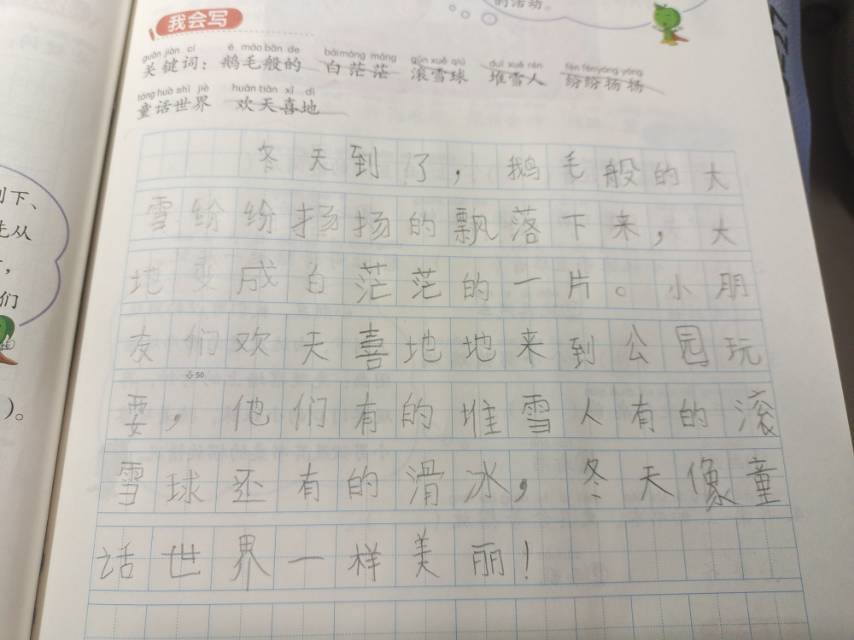 的活动。
我会写
guān jiàn cí é máo bān de bái máng máng gǔn xuě qiú duī xuě rén fēn fēn yáng yáng
关键词：鹅毛般的 白茫茫 滚雪球 堆雪人 纷纷扬扬
tóng huà shì jiè huān tiān xǐ dì
童话世界 欢天喜地
冬天到了，鹅毛般的大
雪纷纷扬扬的飘落下来，大
地变成白茫茫的一片。小朋
友们欢天喜地地来到公园玩
50
耍，他们有的堆雪人有的滚
雪球还有的滑冰，冬天像童
话世界一样美丽！
下、
先从
，
们
)。